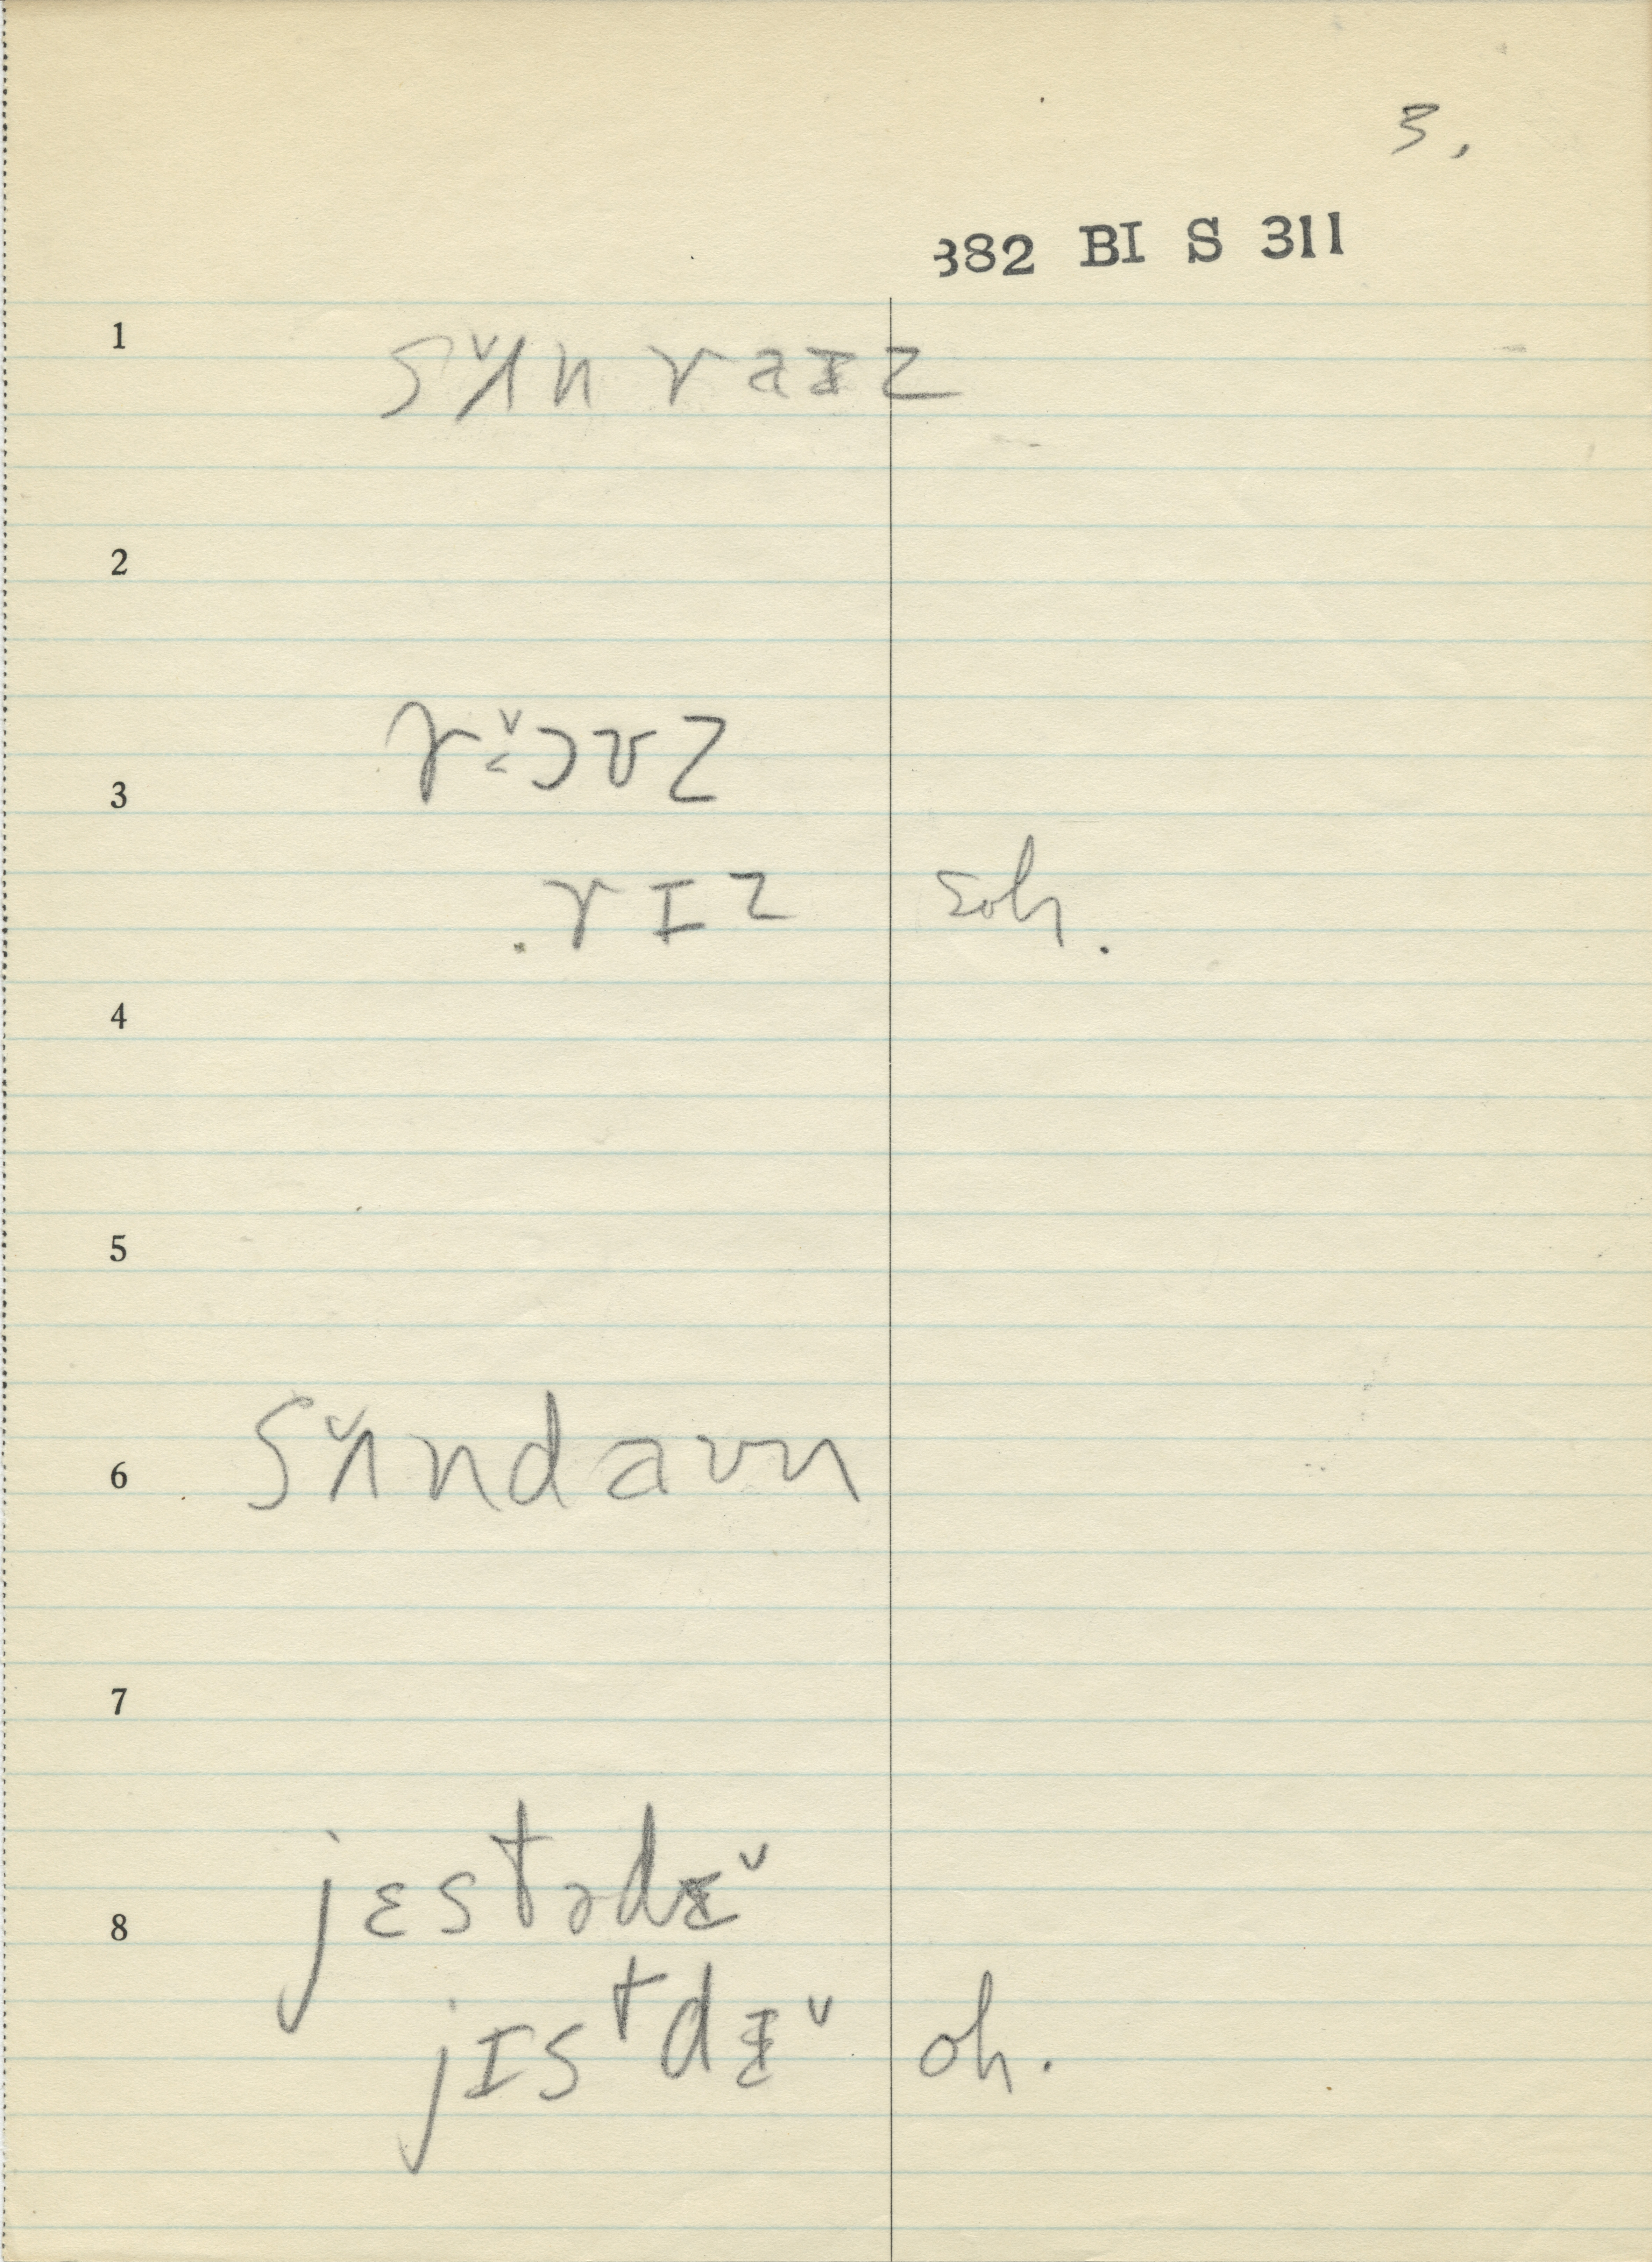 3.
382 BI S 311
1 sʌ̌n raɪz
2
3 rɔ̌ʊz
. rɪz soh.
4
5
6 sʌ̌ndaʊn
7
8 jɛstədɪ̌
jɪstdɪ̌ oh.